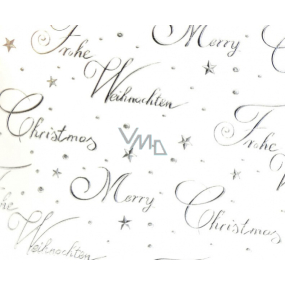 Frohe
Merry
Weihnachten
Christmas
Frohe
VMD
Merry
Christmas
Frohe
Weihnachten